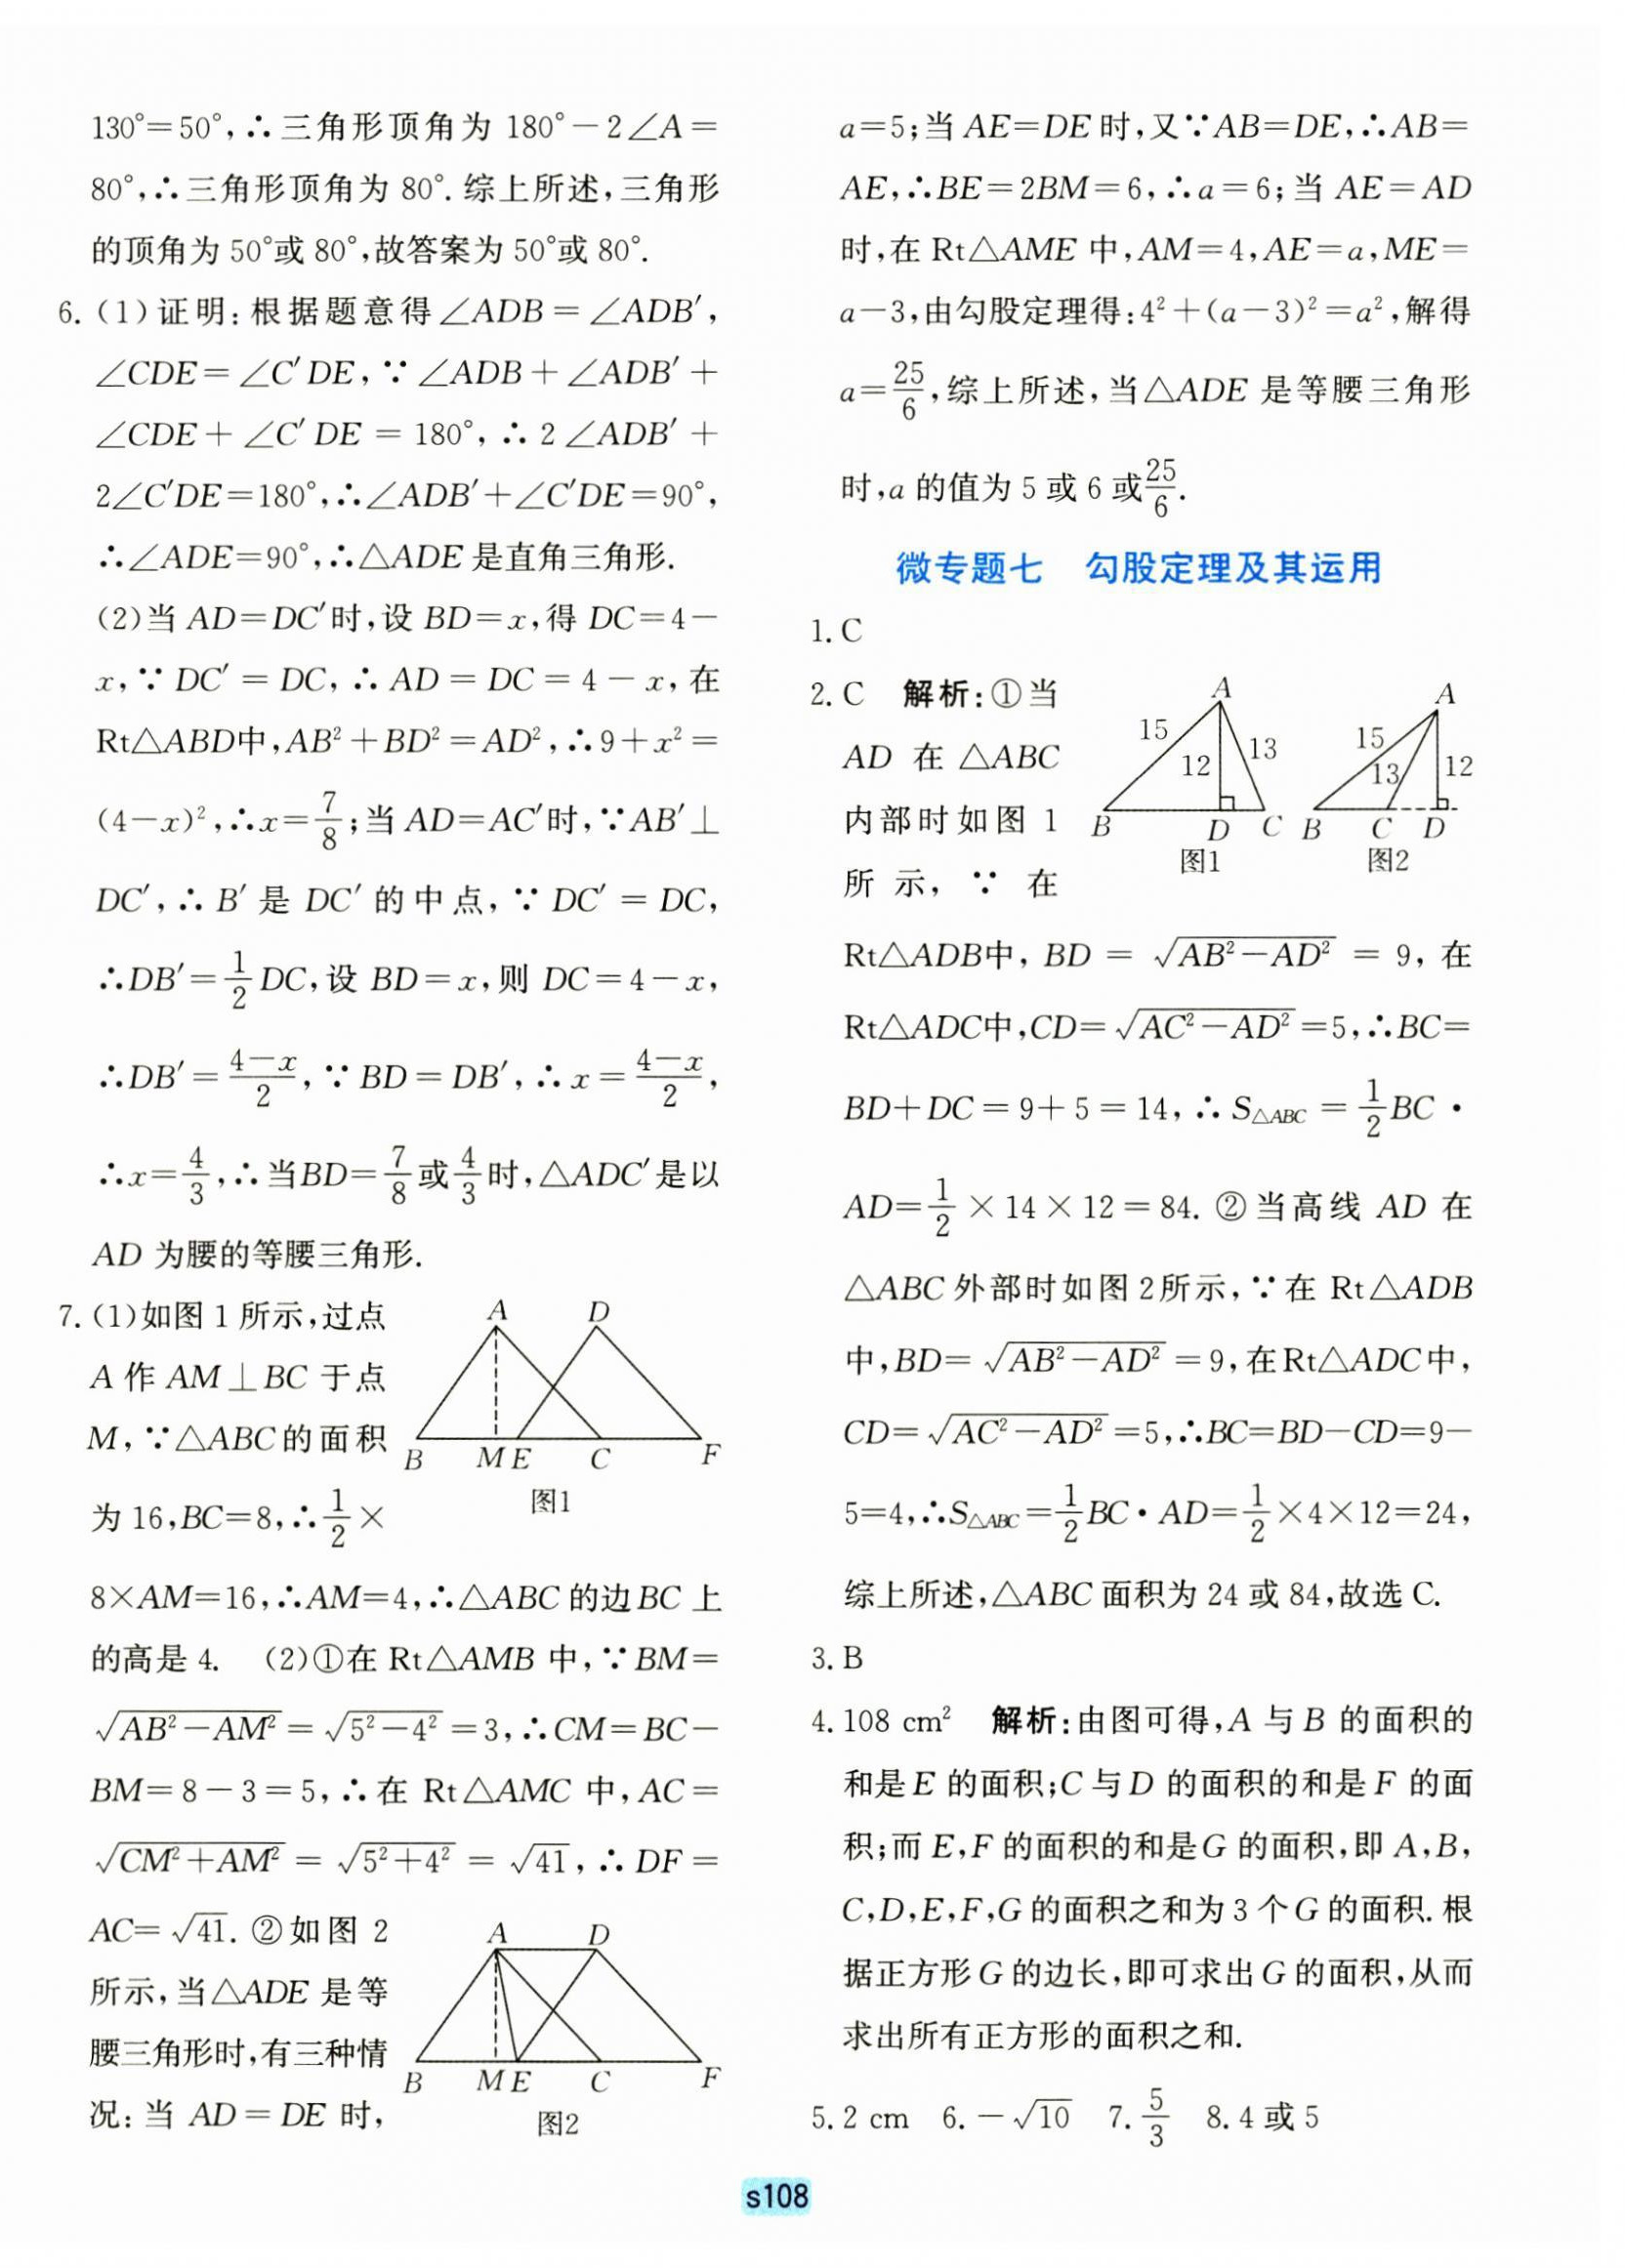 130°=50°,∴三角形顶角为 180°-2∠A=
80°,∴三角形顶角为 80°. 综上所述,三角形
的顶角为 50°或 80°,故答案为 50°或 80°.
6. (1)证明:根据题意得∠ADB=∠ADB′,
∠CDE=∠C′DE,∵∠ADB+∠ADB′+
∠CDE+∠C′DE=180°,∴2∠ADB′+
2∠C′DE=180°,∴∠ADB′+∠C′DE=90°,
∴∠ADE=90°,∴△ADE 是直角三角形.
(2)当 AD=DC′时,设 BD=x,得 DC=4-
x,∵DC′=DC,∴AD=DC=4-x,在
Rt△ABD中,AB²+BD²=AD²,∴9+x²=
(4-x)²,∴x=7/8;当 AD=AC′时,∵AB′⊥
DC′,∴B′是 DC′的中点,∵DC′=DC,
∴DB′=1/2 DC,设 BD=x,则 DC=4-x,
∴DB′=(4-x)/2,∵BD=DB′,∴x=(4-x)/2,
∴x=4/3,∴当BD=7/8或4/3时,△ADC′是以
AD 为腰的等腰三角形.
7. (1)如图 1 所示,过点
A 作 AM⊥BC 于点
M,∵△ABC的面积
为 16,BC=8,∴1/2×
A D
B M E C F
图1
8×AM=16,∴AM=4,∴△ABC 的边BC 上
的高是 4. (2)①在 Rt△AMB 中,∵BM=
√(AB²-AM²)=√(5²-4²)=3,∴CM=BC-
BM=8-3=5,∴在 Rt△AMC 中,AC=
√(CM²+AM²)=√(5²+4²)=√41,∴DF=
AC=√41. ②如图 2
所示,当△ADE 是等
腰三角形时,有三种情
况:当 AD=DE 时,
A D
B M E C F
图2
a=5;当 AE=DE 时,又∵AB=DE,∴AB=
AE,∴BE=2BM=6,∴a=6;当 AE=AD
时,在 Rt△AME 中,AM=4,AE=a,ME=
a-3,由勾股定理得:4²+(a-3)²=a²,解得
a=25/6,综上所述,当△ADE 是等腰三角形
时,a 的值为 5 或 6 或25/6.
微专题七 勾股定理及其运用
1. C
2. C 解析:①当
AD 在 △ABC
内部时如图 1
所示,∵在
A
15 12 13
B D C
图1
A
15 13 12
B C D
图2
Rt△ADB中,BD=√(AB²-AD²)=9,在
Rt△ADC中,CD=√(AC²-AD²)=5,∴BC=
BD+DC=9+5=14,∴S△ABC=1/2 BC·
AD=1/2×14×12=84. ②当高线 AD 在
△ABC 外部时如图 2所示,∵在 Rt△ADB
中,BD=√(AB²-AD²)=9,在Rt△ADC中,
CD=√(AC²-AD²)=5,∴BC=BD-CD=9-
5=4,∴S△ABC=1/2 BC·AD=1/2×4×12=24,
综上所述,△ABC 面积为 24 或 84,故选 C.
3. B
4. 108 cm² 解析:由图可得,A 与 B 的面积的
和是E 的面积;C 与 D 的面积的和是 F 的面
积;而 E,F 的面积的和是G 的面积,即 A,B,
C,D,E,F,G 的面积之和为 3 个 G 的面积. 根
据正方形 G 的边长,即可求出 G 的面积,从而
求出所有正方形的面积之和.
5. 2 cm 6. -√10 7. 5/3 8. 4 或 5
s108